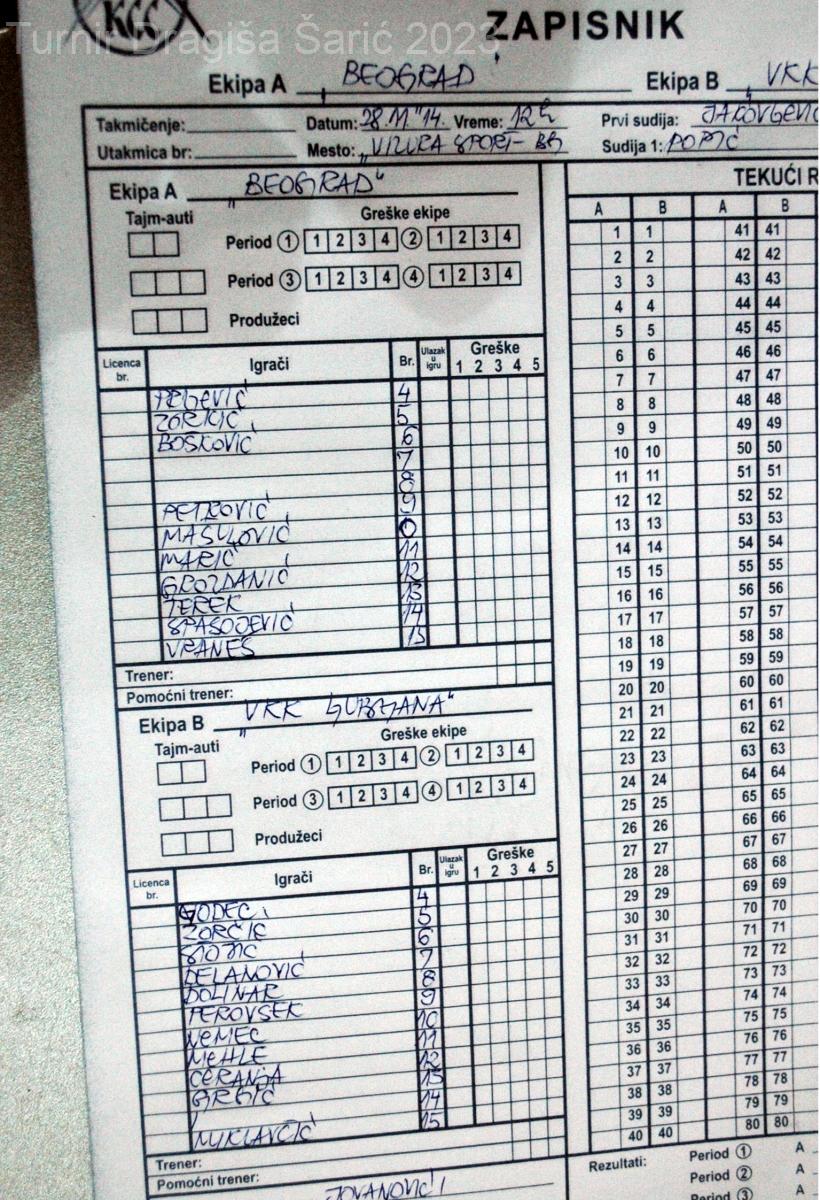 KCC
Turnir Dragiša Šarić 2023
ZAPISNIK
Ekipa A BEOGRAD Ekipa B VKK
Takmičenje: Datum: 28.11."14. Vreme: 12h Prvi sudija:
Utakmica br: Mesto: „VIZURA SPORT- Sudija 1: POPIĆ
Ekipa A „BEOGRAD“
TEKUĆI R
Tajm-auti Greške ekipe
A B A B
Period 1 1 2 3 4 2 1 2 3 4
Period 3 1 2 3 4 4 1 2 3 4
Produžeci
Licenca br. Igrači Br. Ulazak u igru Greške 1 2 3 4 5
4
ZORKIĆ 5
BOSKOVIĆ 6
7
8
PETROVIĆ 9
MASULOVIĆ 0
MARIĆ 11
GROZDANIĆ 12
TEREK 13
SPASOJEVIĆ 14
VRANEŠ 15
Trener:
Pomoćni trener:
Ekipa B „VKK LJUBLJANA“
Tajm-auti Greške ekipe
Period 1 1 2 3 4 2 1 2 3 4
Period 3 1 2 3 4 4 1 2 3 4
Produžeci
Licenca br. Igrači Br. Ulazak u igru Greške 1 2 3 4 5
4
ZORČIČ 5
6
DELANOVIĆ 7
DOLINAR 8
PEROVSEK 9
NEMEC 10
MEHLE 11
CERANJA 12
GRBIĆ 13
14
MIKLAVČIČ 15
Trener:
Pomoćni trener:
JOVANOVIĆ
1 1 41 41
2 2 42 42
3 3 43 43
4 4 44 44
5 5 45 45
6 6 46 46
7 7 47 47
8 8 48 48
9 9 49 49
10 10 50 50
11 11 51 51
12 12 52 52
13 13 53 53
14 14 54 54
15 15 55 55
16 16 56 56
17 17 57 57
18 18 58 58
19 19 59 59
20 20 60 60
21 21 61 61
22 22 62 62
23 23 63 63
24 24 64 64
25 25 65 65
26 26 66 66
27 27 67 67
28 28 68 68
29 29 69 69
30 30 70 70
31 31 71 71
32 32 72 72
33 33 73 73
34 34 74 74
35 35 75 75
36 36 76 76
37 37 77 77
38 38 78 78
39 39 79 79
40 40 80 80
Rezultati: Period 1 A
Period 2 A
Period 3 A